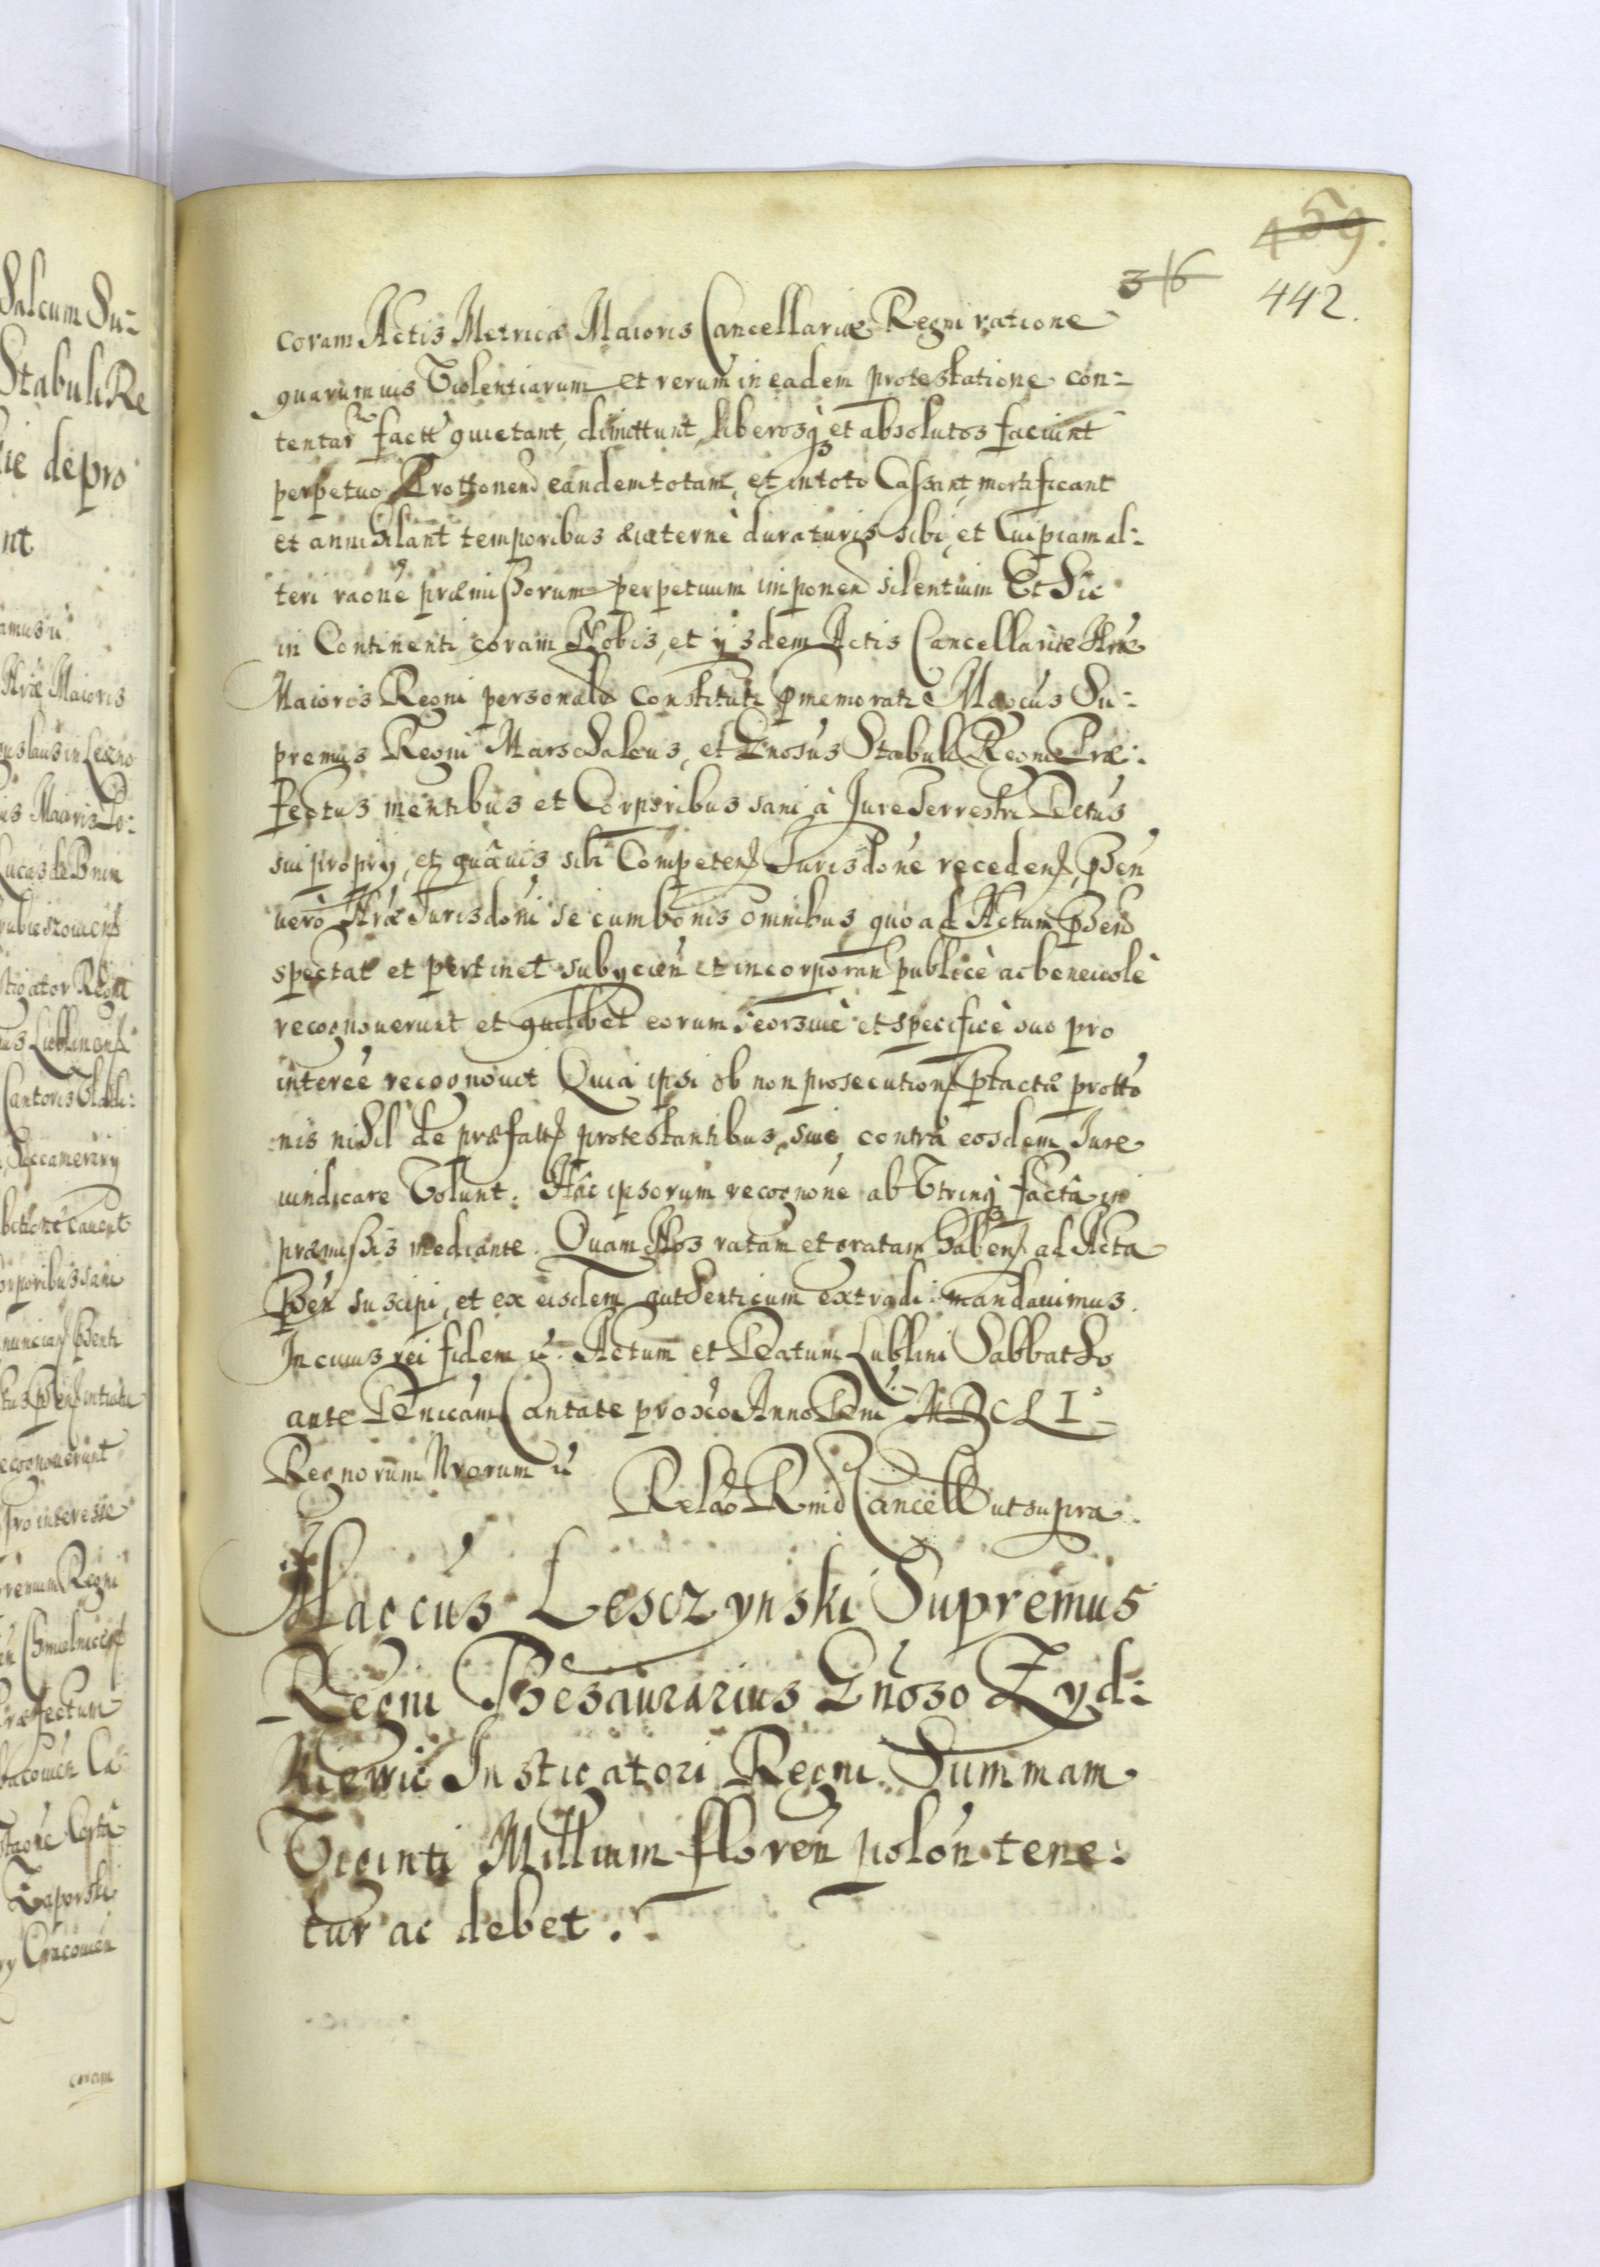 459.
316
442.
coram Actis Metricæ Maioris Cancellariæ Regni ratione
quarumuis Violentiarum et rerum in eadem protestatione con-
tentar factt quietant, dimittunt, liberosq et absolutos faciunt
perpetuo Protthonem eandem totam, et in toto Cassant, mortificant
et annihilant temporibus æuiternè duraturis sibi, et Cuipiam al-
teri raone præmissorum perpetuum imponen silentium Et Sic
in Continenti coram Nobis, et ysdem Actis Cancellariæ Nræ
Maioris Regni personalr Constituti pmemorati Magcus Su-
premus Regni Marschalcus, et Gnosus Stabuli Regni Præ-
fectus mentibus et Corporibus sani à Jure Terrestri Dctus
sui propry, et quâuis sibi Competen Jurisdone receden, psen
uerò Nræ Jurisdoni se cum bonis omnibus quo ad Actum psen
spectat et pertinet subycien et incorporan publicè ac beneuolè
recognouerunt et quilibet eorum seorsiuè et specificè suo pro
interee recognouit Quia ipsi ob non prosecution ptactæ protto
nis nihil de præfatt protestantibus, siue contrà eosdem Jure
uindicare Volunt. Hâc ipsorum recognone ab Vtrinq factâ in
præmissis mediante. Quam Nos ratam et gratam haben ad Acta
psen suscipi, et ex eisdem authenticum extradi mandauimus.
In cuius rei fidem &. Actum et Datum Lublini Sabbatho
ante Dnicam Cantate proxio Anno Dni MDCLI
Regnorum Nrorum &
Relao Rmi Cancell ut supra.
Magcus Lesczynski Supremus
Regni Thesaurarius Gnoso Zyd-
kiewic Instigatori Regni Summam
Viginti Millium floren polon tene-
tur ac debet.
Stabuli Re
de pro
nt
Maioris
Lucas de Bnin
Lublinen
orporibus sani
ecognouerunt
pro interesse
Chmielnicen
ræfectum
Cracouien
coram